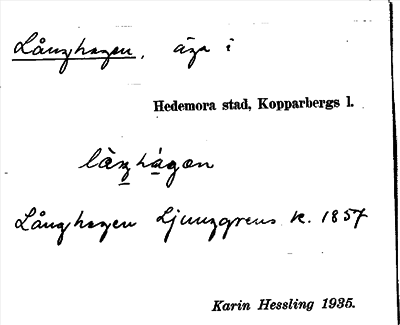 Långhagen, äga i
Hedemora stad, Kopparbergs l.
Långhagen Ljunggrens k. 1857
Karin Hessling 1935.